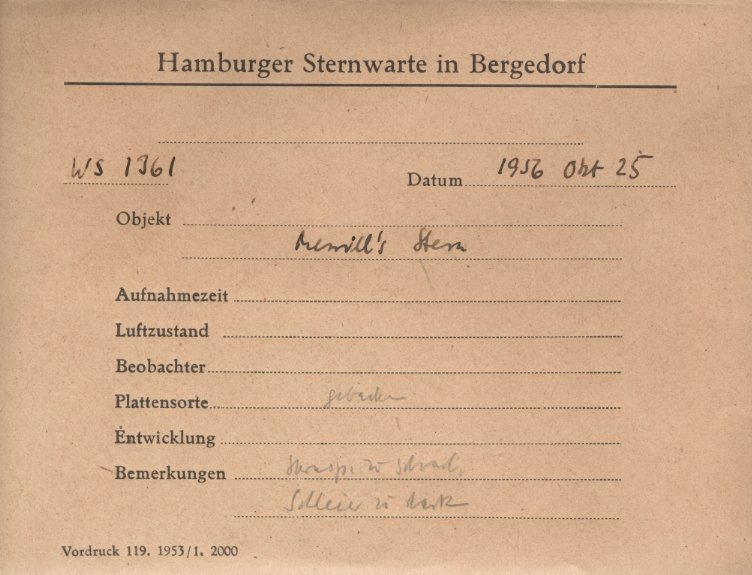 Hamburger Sternwarte in Bergedorf
WS 1361
Datum 1956 Okt 25
Objekt
Merrill's Stern
Aufnahmezeit
Luftzustand
Beobachter
Plattensorte gebacken
Entwicklung
Bemerkungen zu schwach,
Schleier zu stark
Vordruck 119. 1953/1. 2000